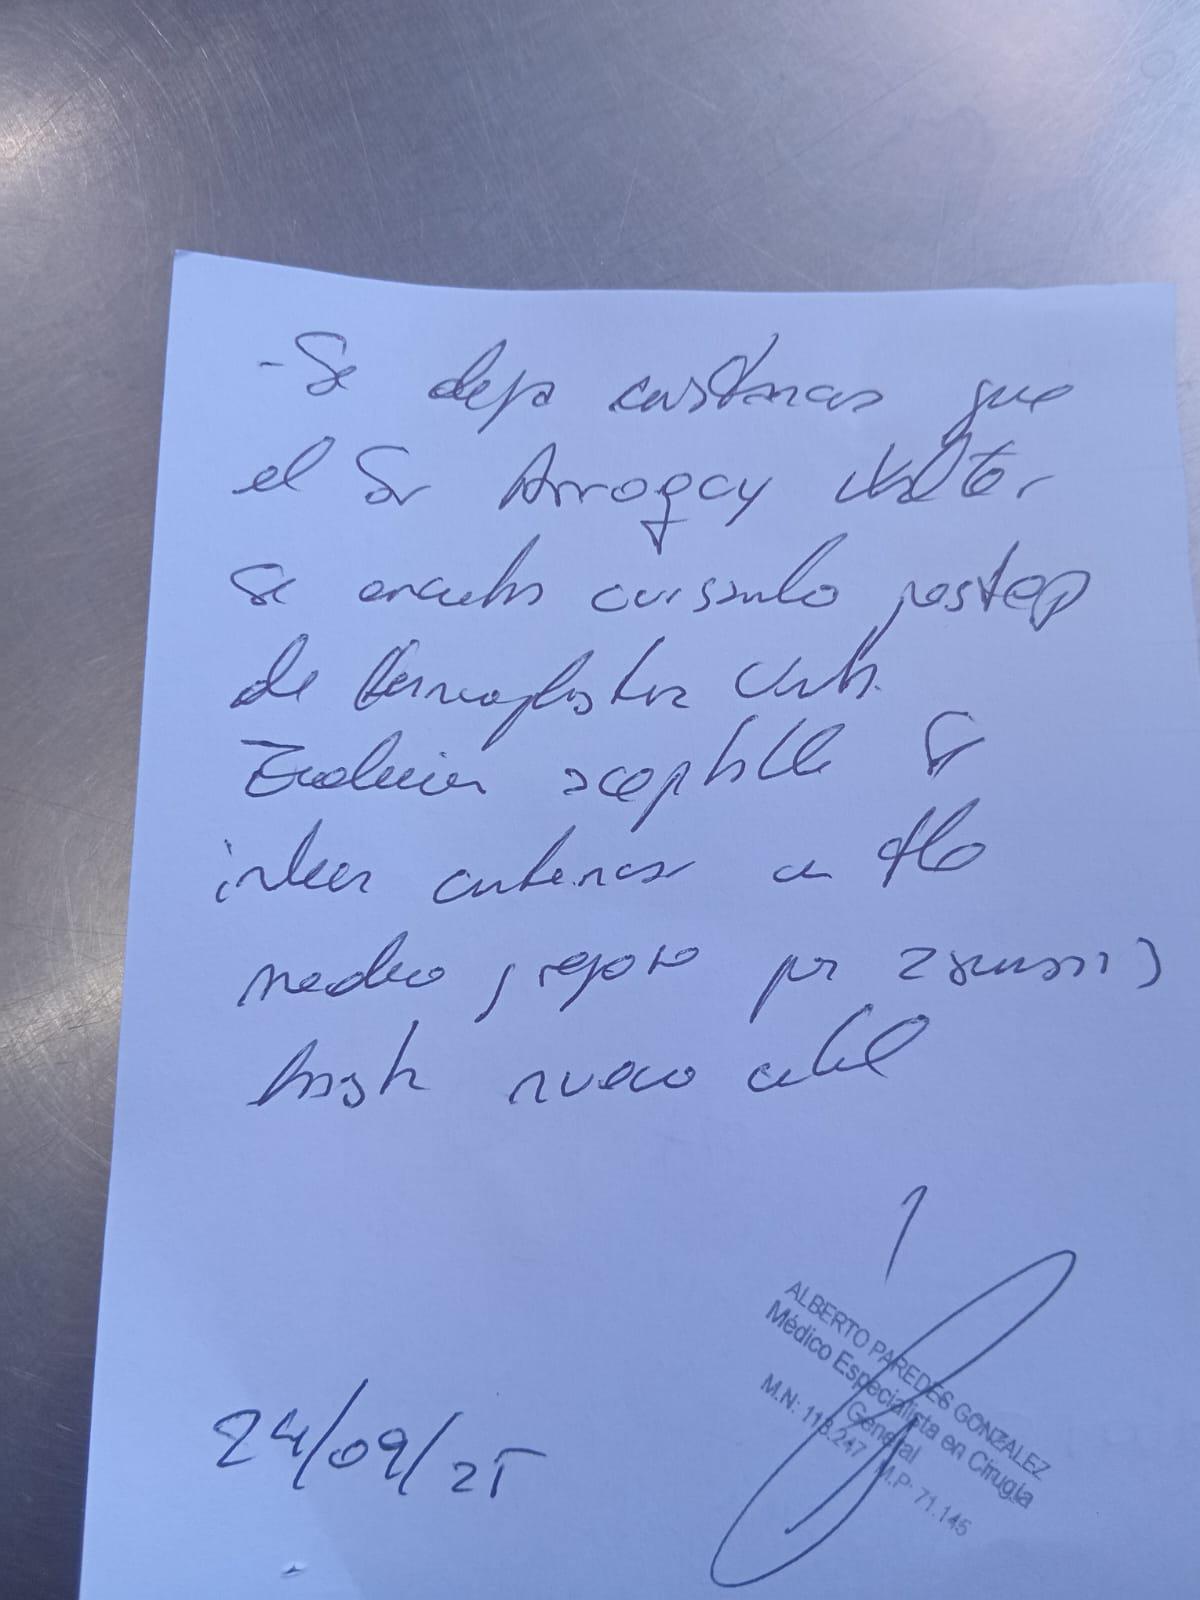 - Se deja constancia que
el Sr Arrogay Walter
se encuentra cursando postop
de hernioplastia
Evolución aceptable Se
indica continuar con tto
medico y reposo por 2 semanas
hasta nuevo control
ALBERTO PAREDES GONZALEZ
Médico Especialista en Cirugía
General
M.N: 118.247 M.P: 71.145
24/09/25